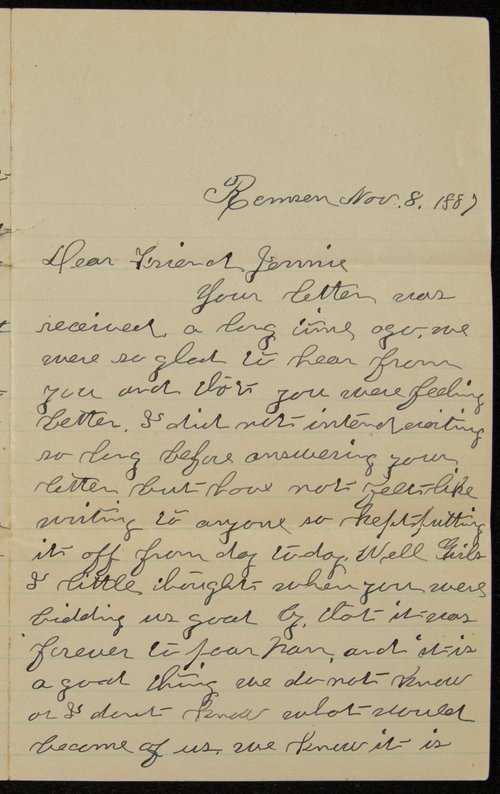 Remsen Nov. 8. 1887
Dear Friend Jennie
Your letter was
received, a long time, ago, we
were so glad to hear from
you and that you were feeling
better. I did not intend waiting
so long before answering your
letter, but have not felt like
writing to anyone so kept putting
it off from day to day. Well Girls
I little thought when you were
bidding us good by, that it was
forever to poor Nan, and it is
a good thing we do not know
or I dont know what would
become of us, we know it is